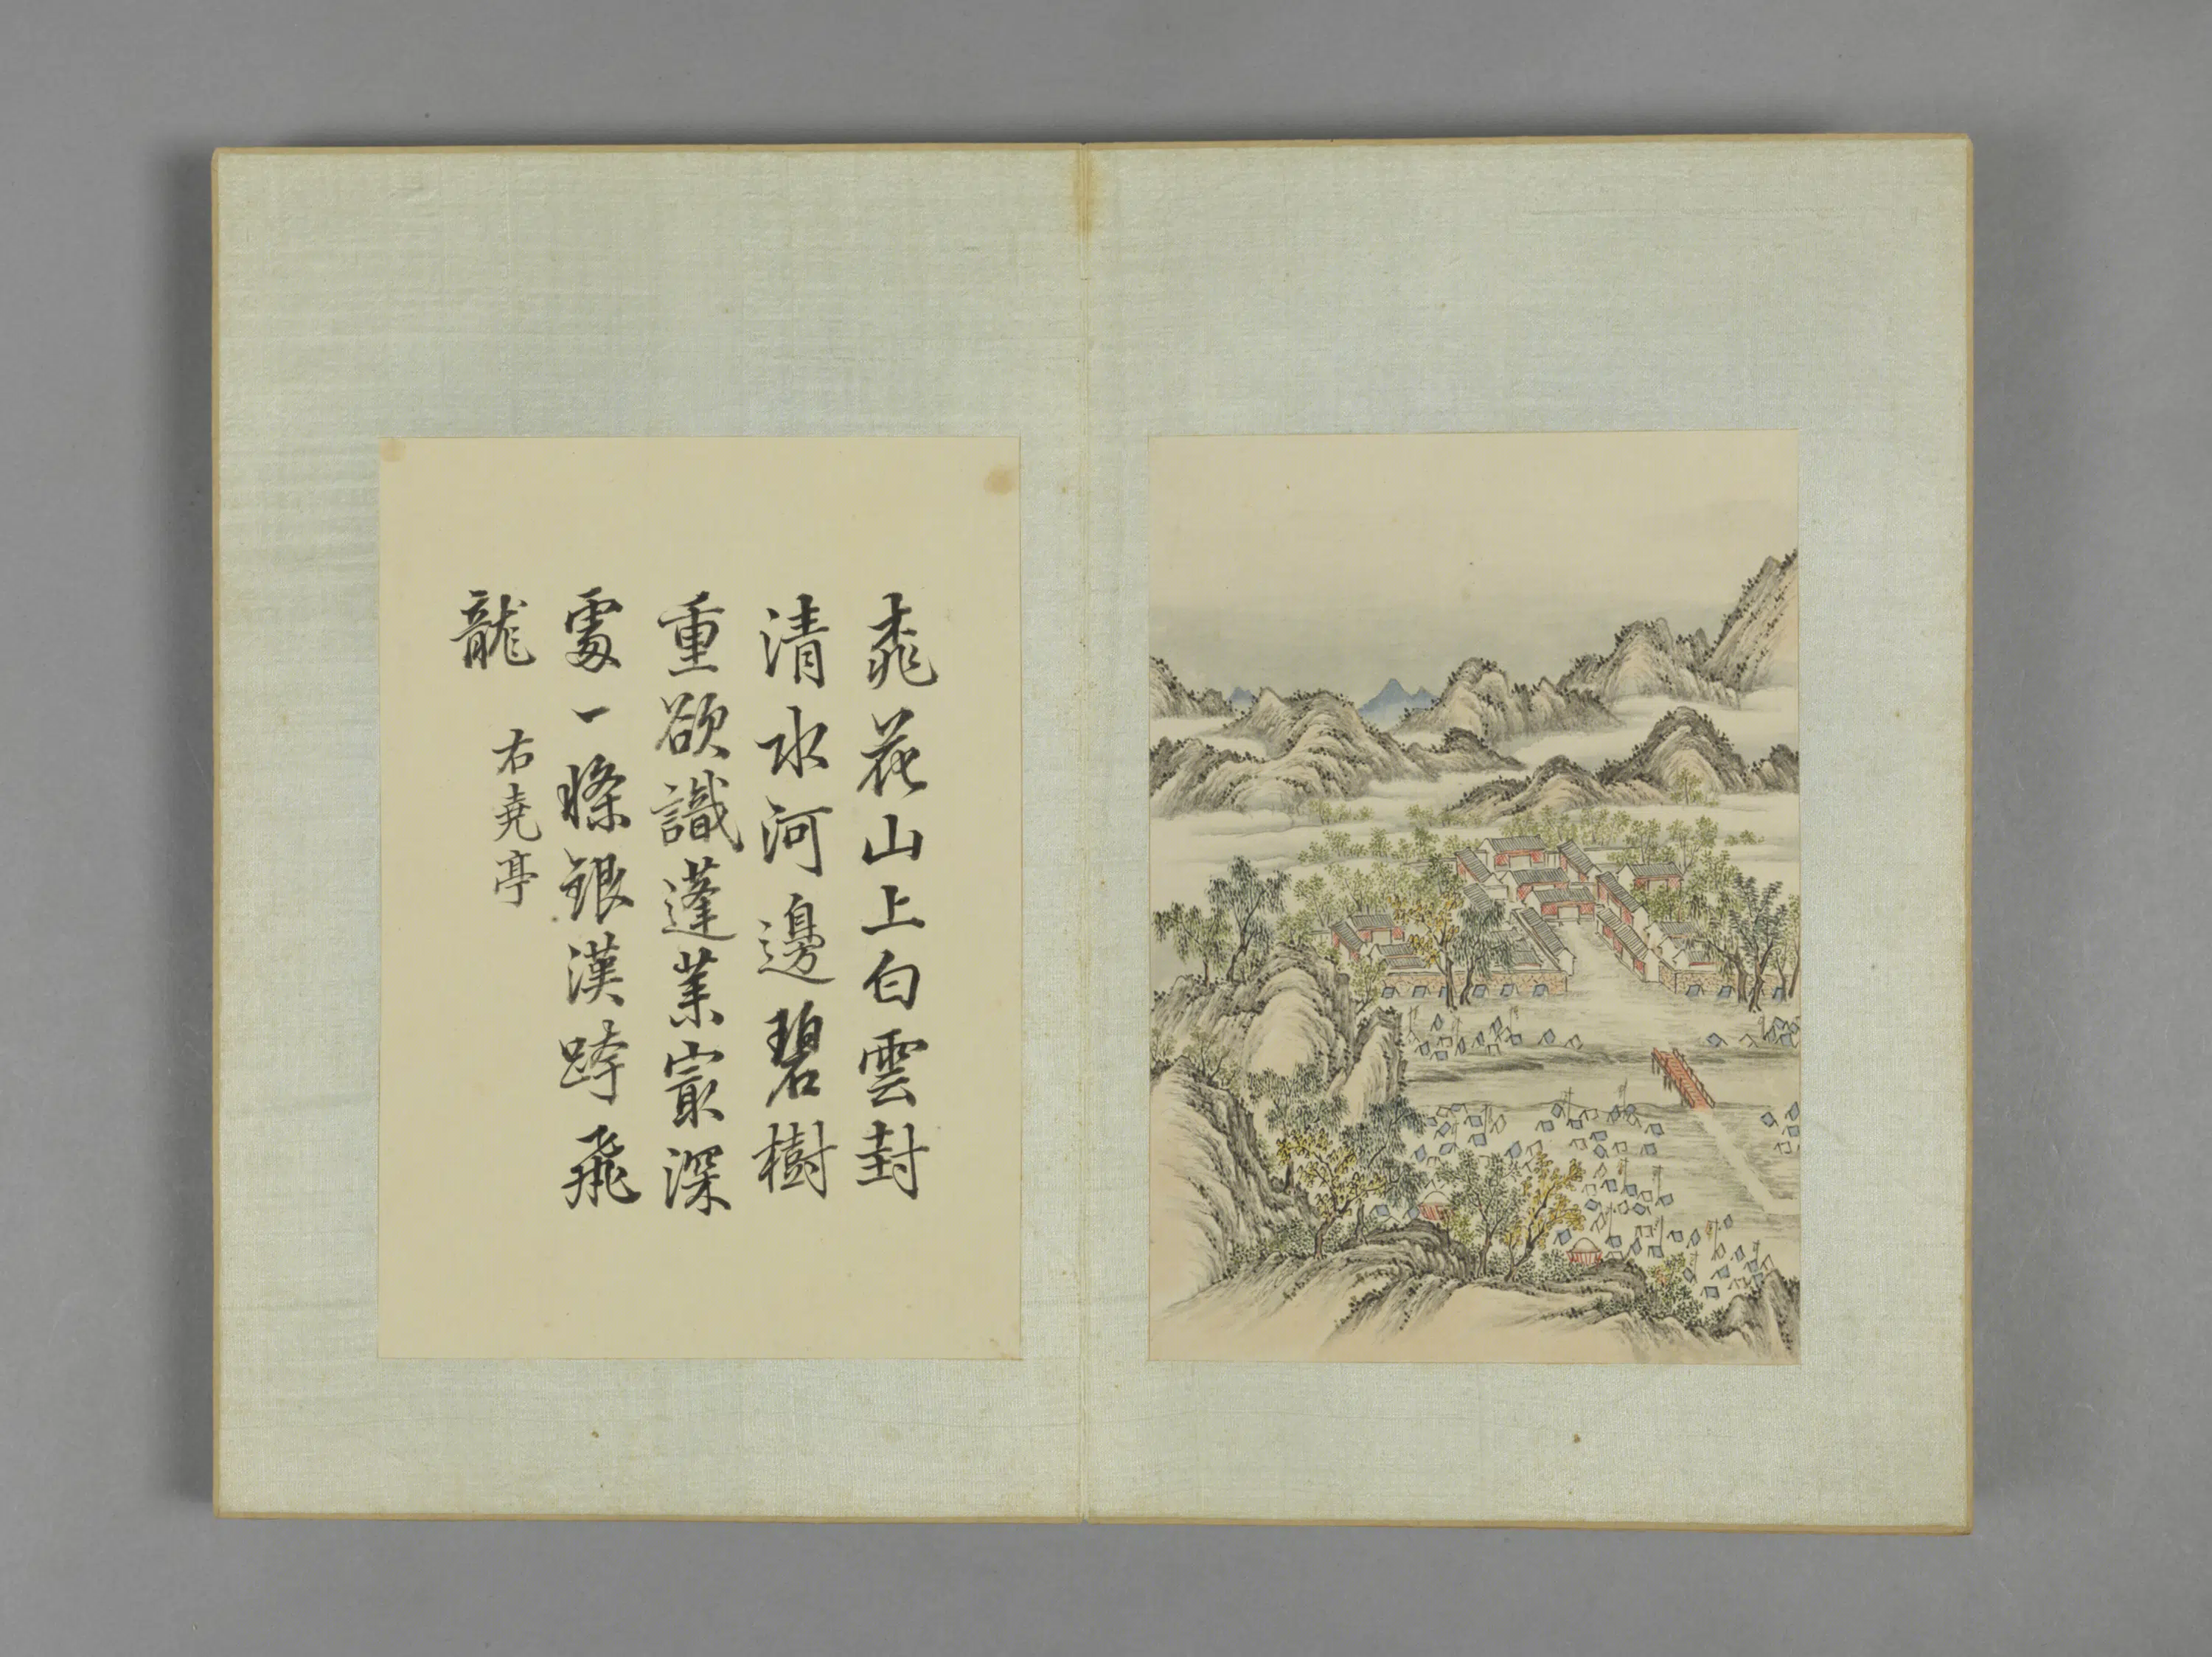 桃花山上白雲封
清水河邊碧樹
重欲識蓬莱㝡深
處一條銀漢跨飛
龍
右尭亭